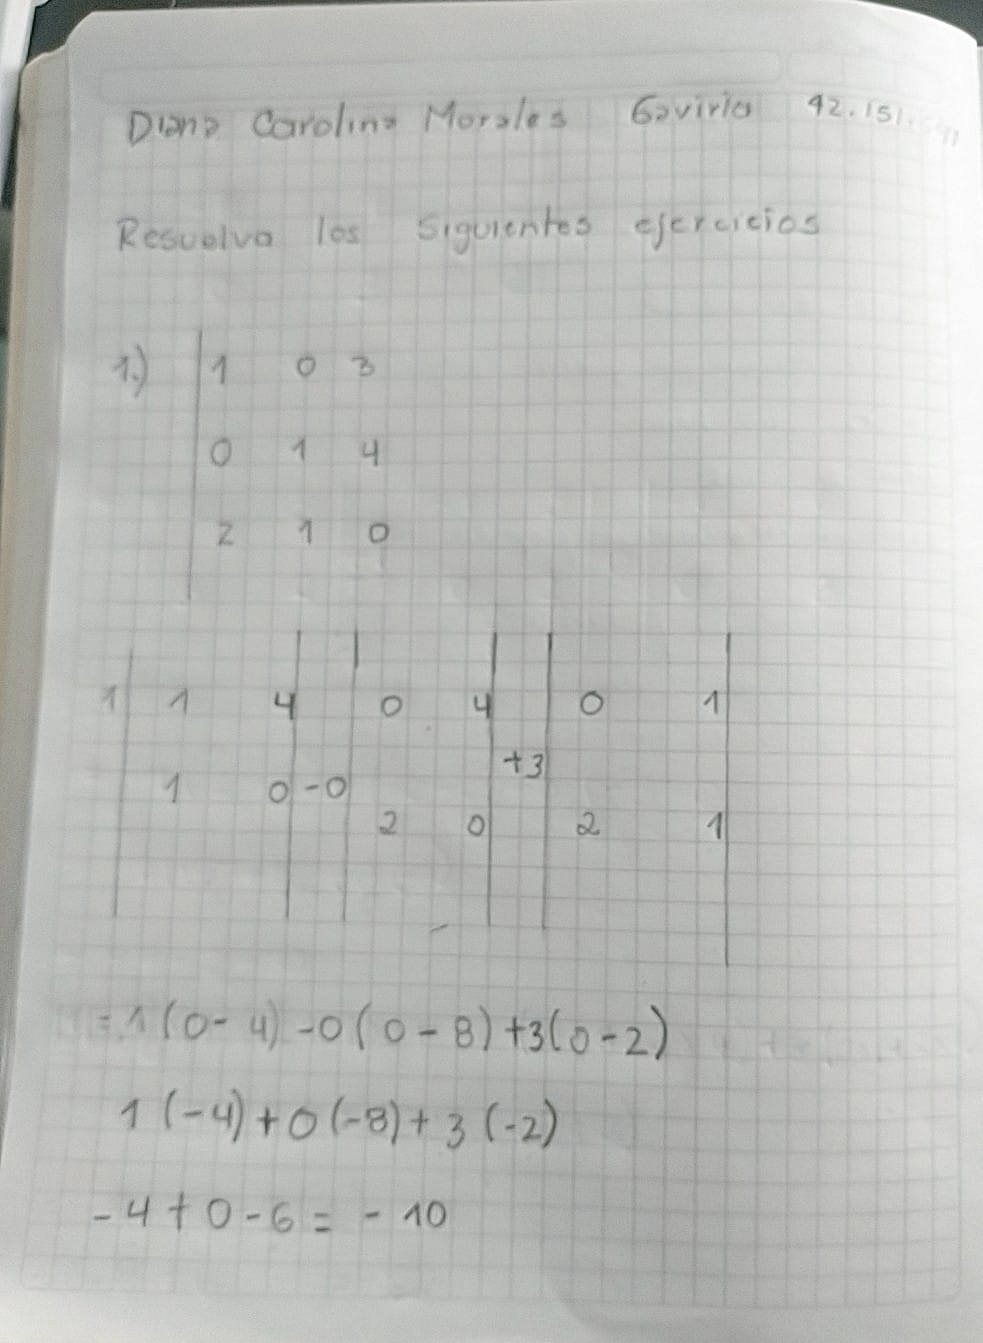 Diana Carolina Morales Gaviria 42.151.
Resuelva los siguientes ejercicios
1.) | 1 0 3
0 1 4
2 1 0
1 | 1 4 | | 0 4 | | 0 1 |
+3
1 0 -0
2 0 2 1
= 1 (0 - 4) - 0 (0 - 8) + 3 (0 - 2)
1 (-4) + 0 (-8) + 3 (-2)
- 4 + 0 - 6 = - 10